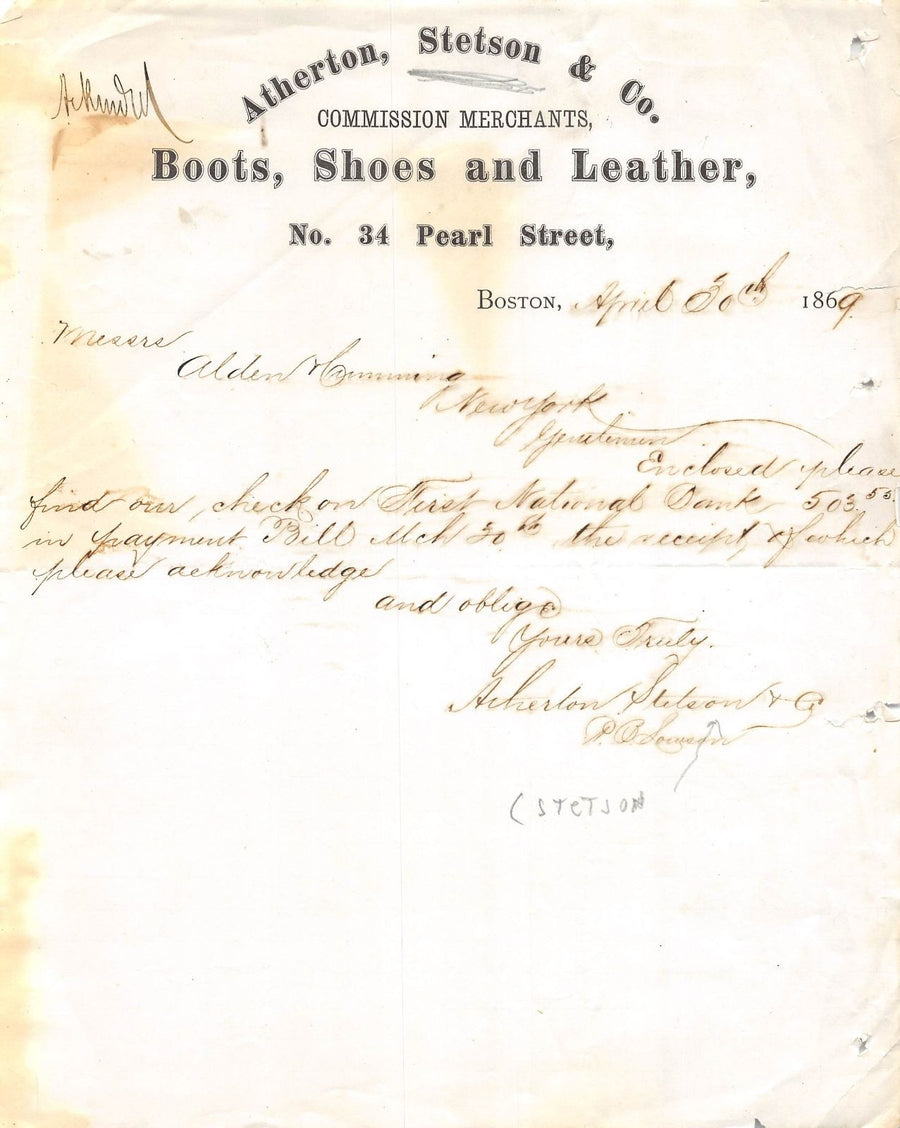 Atherton, Stetson & Co.
COMMISSION MERCHANTS,
Boots, Shoes and Leather,
No. 34 Pearl Street,
Boston, April 30th 1869
Messrs
Alden & Cumming
New York
Gentlemen
Enclosed please
find our check on First National Bank 503.55
in payment Bill Mch 30th the receipt of which
please acknowledge
and oblige
Yours Truly.
Atherton Stetson & Co
P. B.
(STETSON